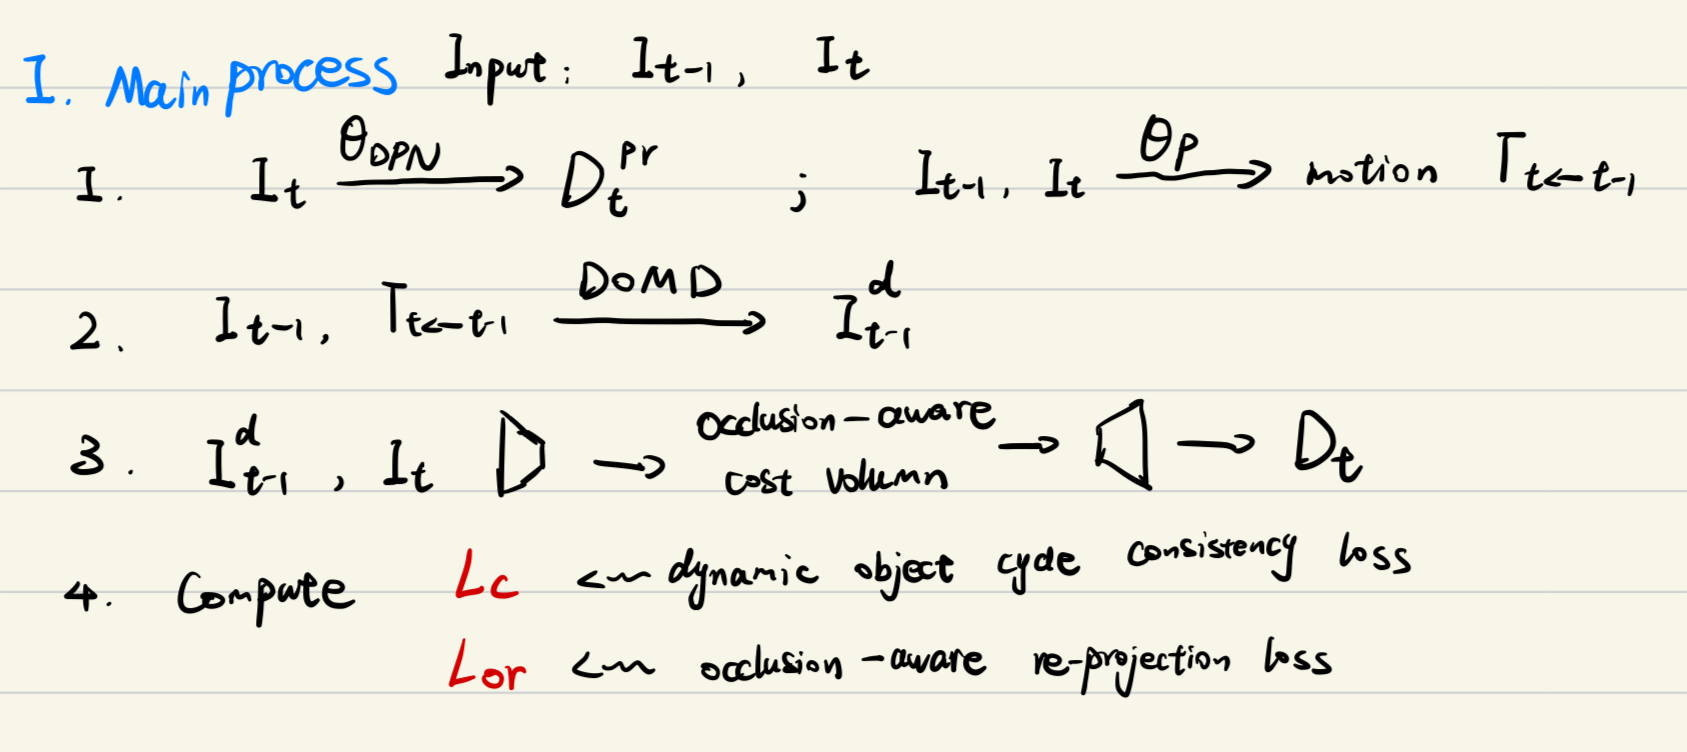 I. Main process Input: I_{t-1}, I_t
1. I_t \xrightarrow{θ_{DPN}} D_t^{pr} ; I_{t-1}, I_t \xrightarrow{θ_P} motion T_{t←t-1}
2. I_{t-1}, T_{t←t-1} \xrightarrow{DOMD} I_{t-1}^d
3. I_{t-1}^d, I_t → occlusion-aware cost volumn → → D_t
4. Compute L_c ← dynamic object cycle consistency loss
L_{or} ← occlusion-aware re-projection loss